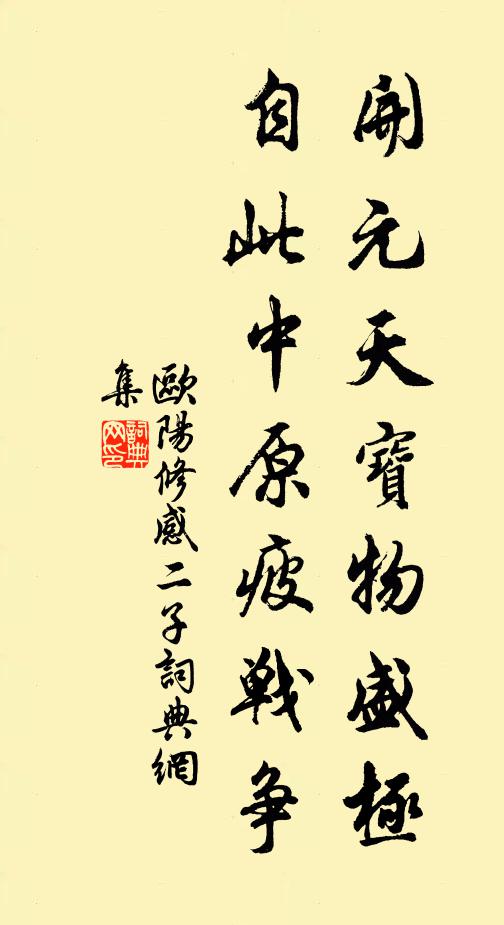 開元天寶物盛極
自此中原疲戰争
歐陽修感二子詞典網
集
詞典
网印